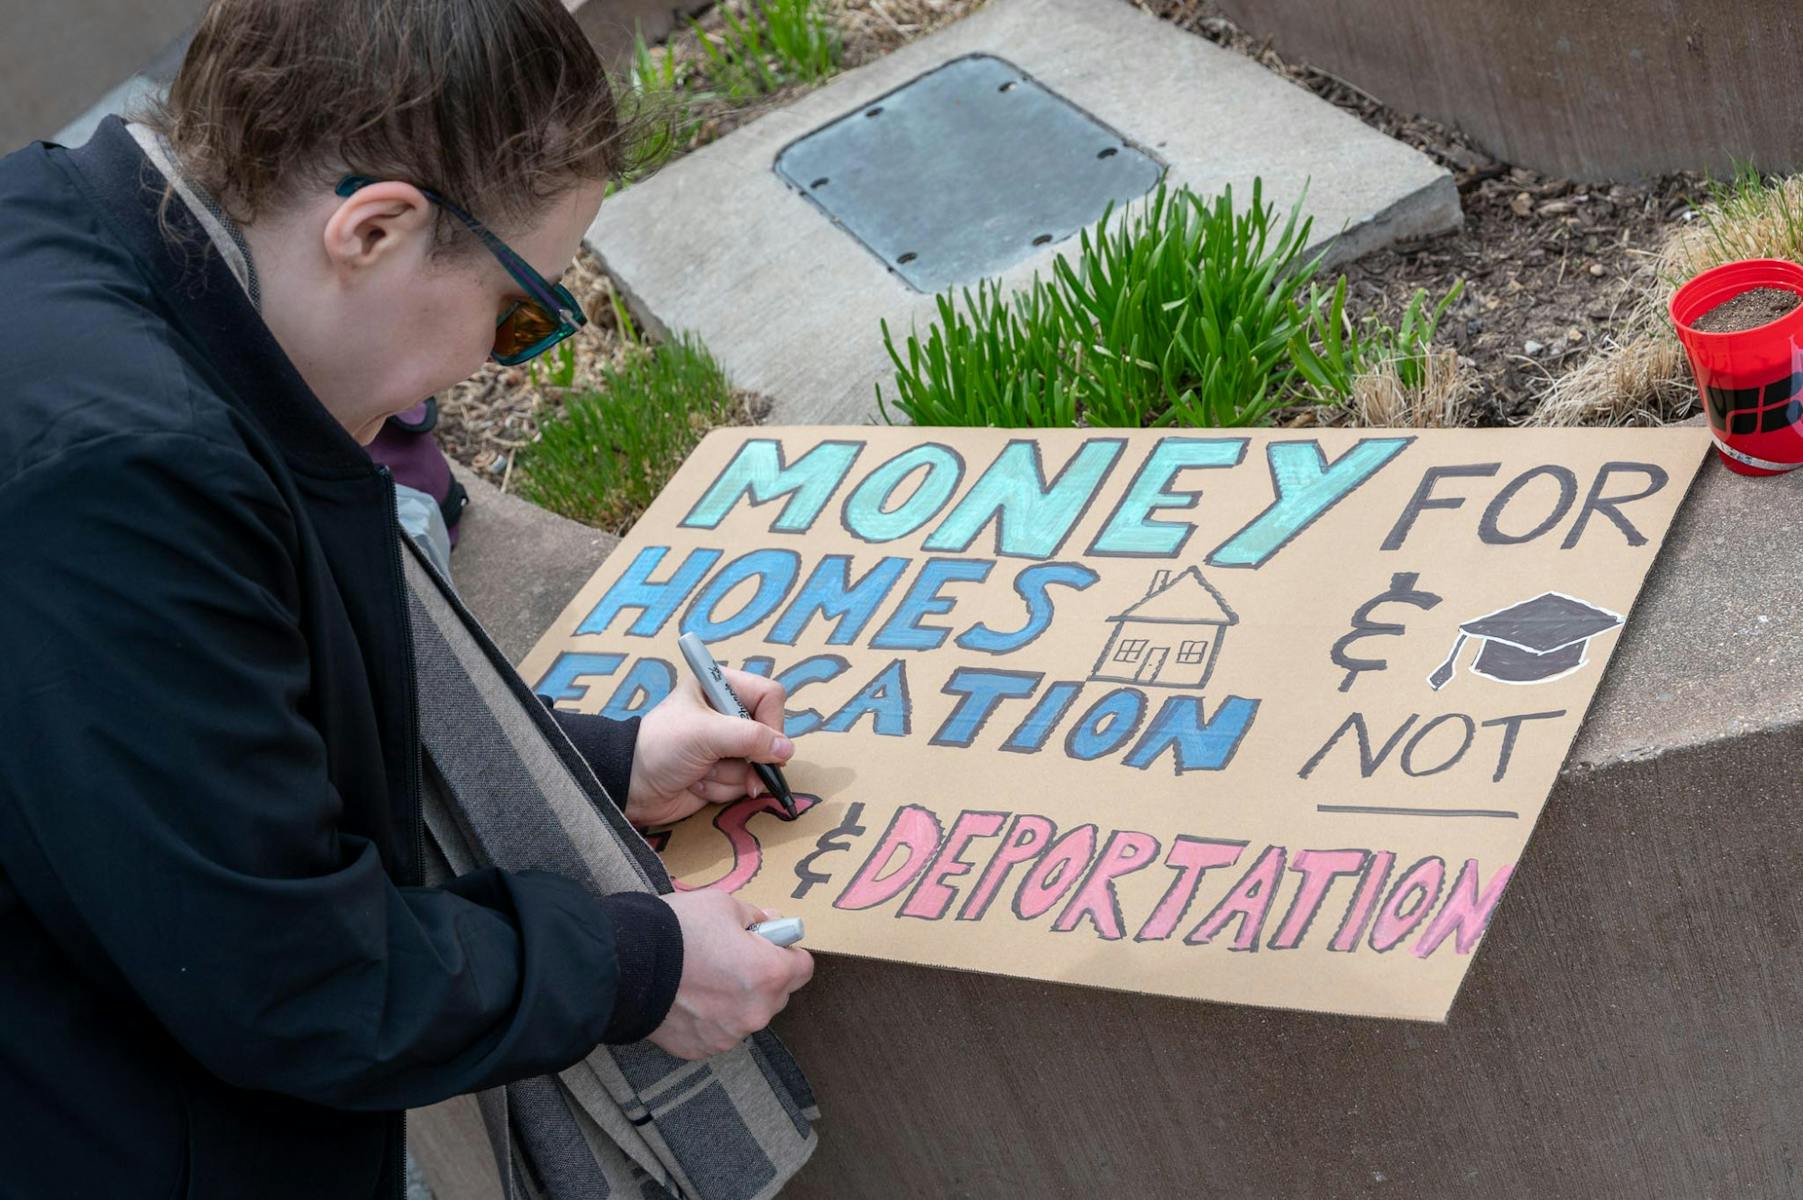 MONEY FOR
HOMES &
EDUCATION NOT
S & DEPORTATION
Sharpie